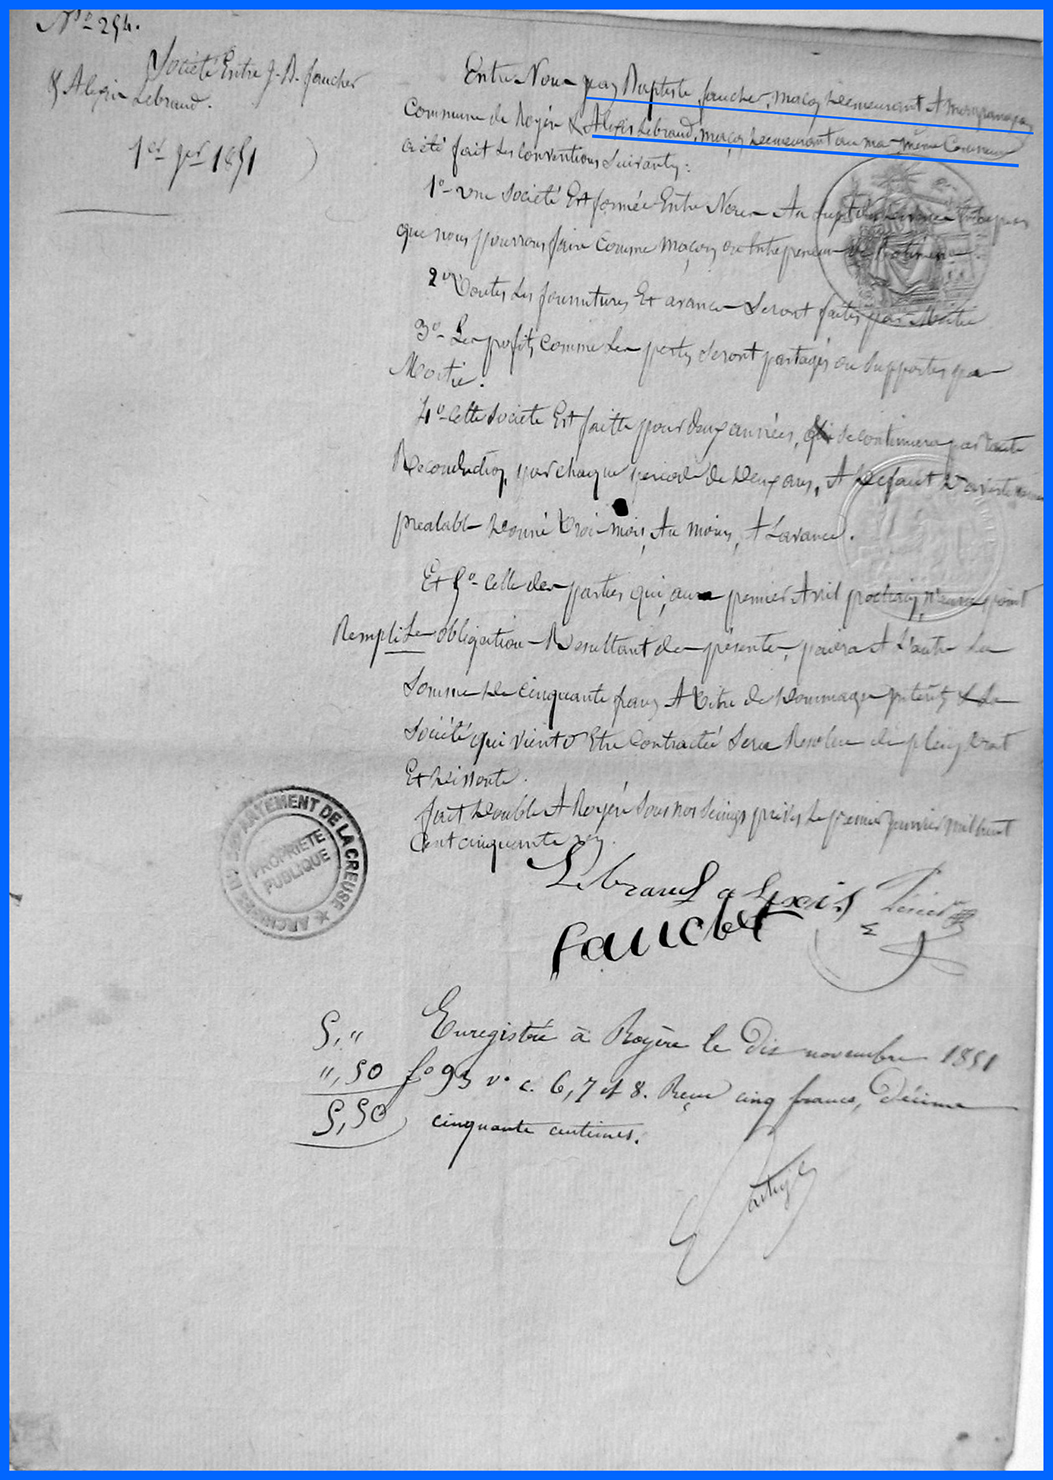 N° 254.
Société Entre J. B. faucher
& Alexis Lebraud.
1er jer 1851
Entre Nous jean Baptiste faucher, maçon demeurant A
Commune de Royère & Alexis Lebraud, maçon demeurant au même Commune
a été fait les conventions suivantes:
1° une société Est formée Entre Nous
que nous pourrons faire Comme maçons ou Entrepreneur de
2° toutes les fournitures Et avances Seront faites par Moitié
3° Les profits comme les pertes seront partagés ou supportés par
Moitié.
4° Cette société Est faitte pour deux années, se continuera par tacite
Reconduction, par chaque période de deux ans, A défaut
prealable donné trois mois, Au moins, A Lavance.
Et 5° Celle des parties qui, au premier Avril prochain, n'aura point
Rempli Les obligations Resultant des présentes, paiera A L'autre La
Somme de cinquante francs A titre de dommages intérêts & La
Société qui vient d'Etre Contractée Sera Resolue de plein droit
Et dissoute.
fait double A Royère sous nos seings privés Le premier janvier mil huit
Cent cinquante un.
Lebraud alexis
faucher
ARCHIVES DU DEPARTEMENT DE LA CREUSE
PROPRIETE
PUBLIQUE
5, "
", 50
5,50
Enregistré à Royère le dix novembre 1851
f° 93 v° c. 6, 7 et 8. Reçu cinq francs, décime
cinquante centimes.